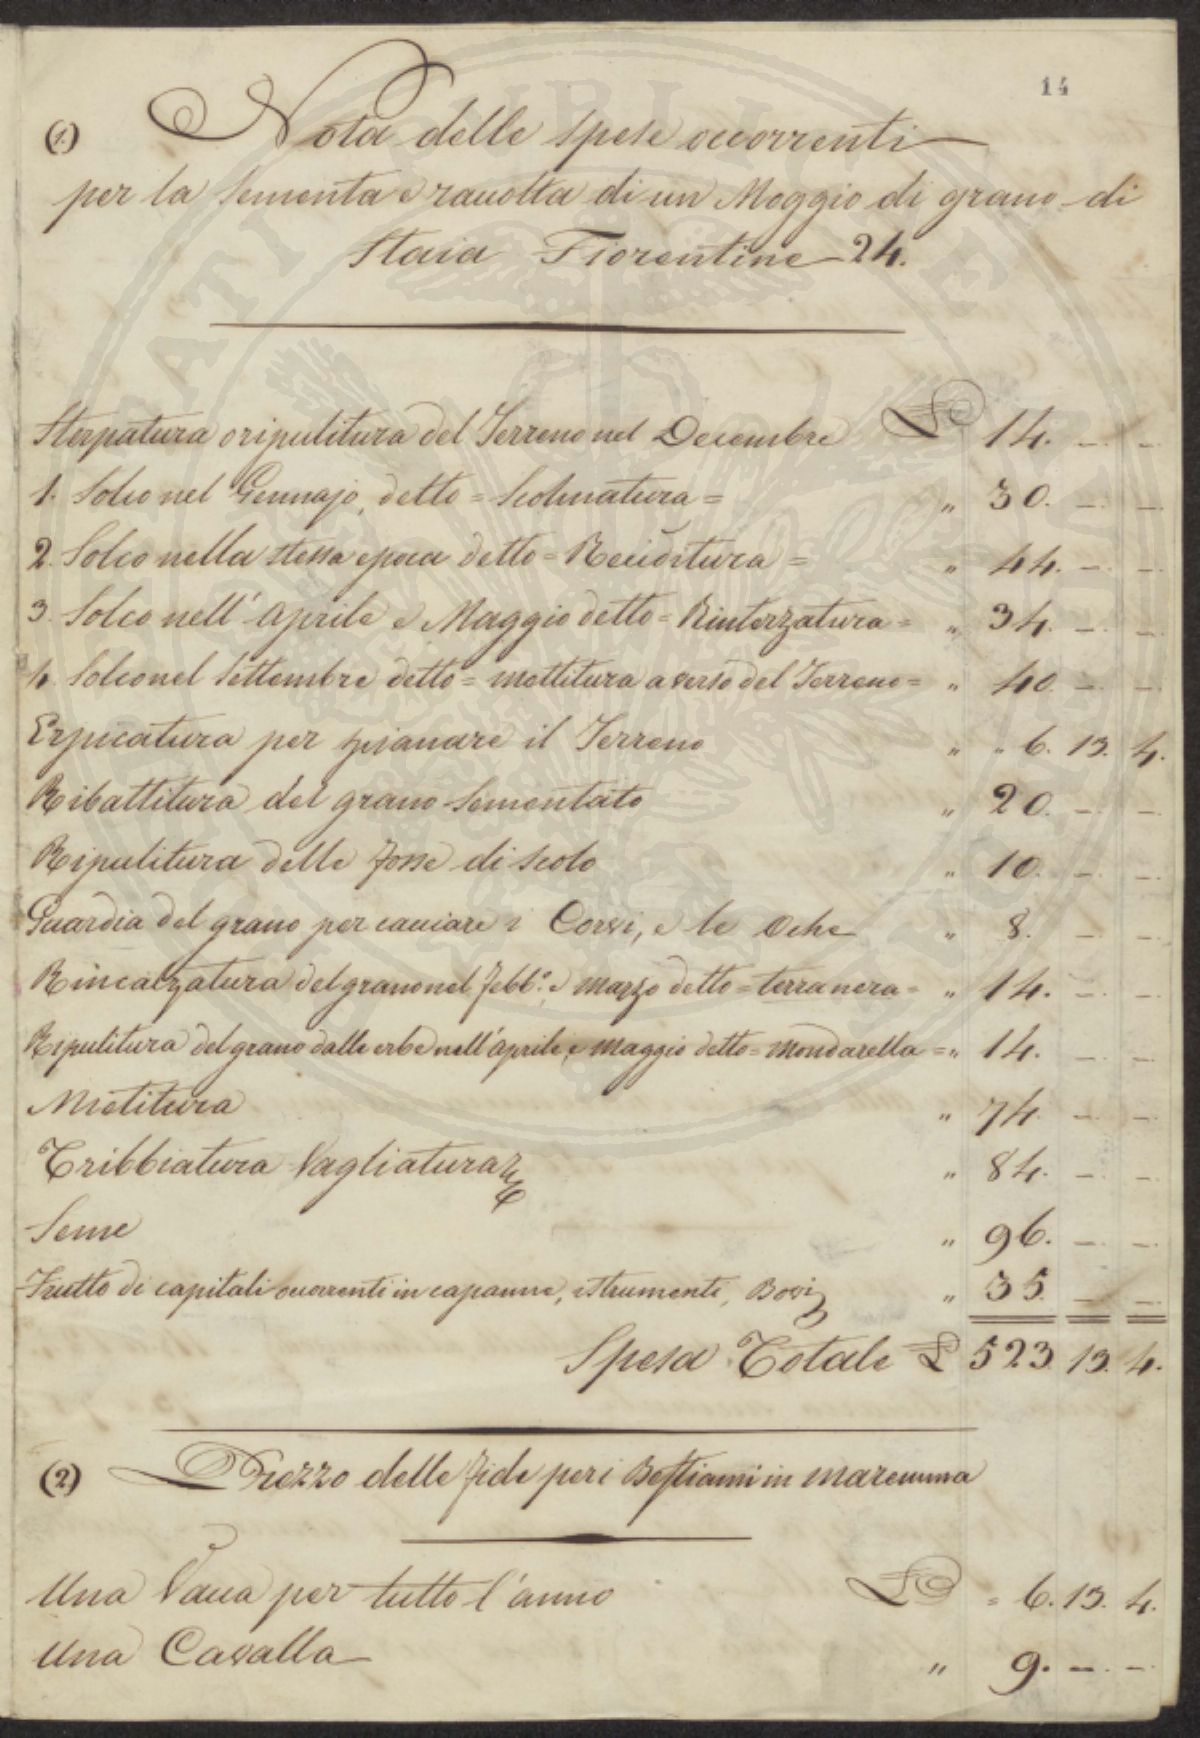 14
(1.) Nota delle Spese occorrenti
per la Sementa e raccolta di un Moggio di grano di
Staia Fiorentine 24.
Sterpatura o ripulitura del Terreno nel Decembre £ 14. — —
1. Solco nel Gennajo, detto = Scolmatura = " 30. — —
2. Solco nella stessa epoca detto = Reciditura = " 44. — —
3. Solco nell' Aprile e Maggio detto = Rinterzatura = " 34. — —
4. Solco nel Settembre detto = mettitura a verso del Terreno = " 40. — —
Erpicatura per spianare il Terreno " " 6. 13. 4.
Ribattitura del grano Sementato " 20. — —
Ripulitura delle fosse di scolo " 10. — —
Guardia del grano per cacciare i Corvi, e le Oche " 8. — —
Rincalzatura del grano nel Febb.o e marzo detto = terra nera = " 14. — —
Ripulitura del grano dalle erbe nell'aprile, e maggio detto = Mondarella = " 14. — —
Mietitura " 74. — —
Tribbiatura Vagliatura " 84. — —
Seme " 96. — —
Frutto di capitali occorrenti in capanne, istrumenti, Bovi " 35. — —
Spesa Totale £ 523. 13. 4.
(2) Prezzo delle fide per i Bestiami in maremma
Una Vacca per tutto l'anno £ " 6. 13. 4.
Una Cavalla " 9. — —